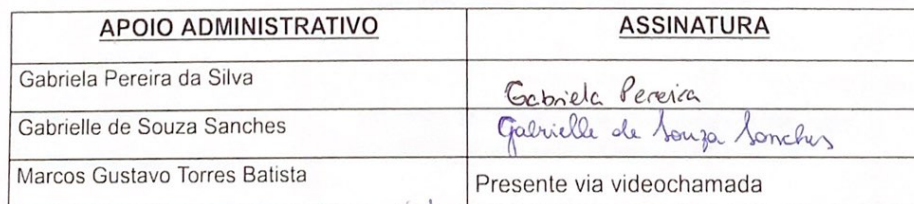 APOIO ADMINISTRATIVO ASSINATURA
Gabriela Pereira da Silva Gabriela Pereira
Gabrielle de Souza Sanches Gabrielle de Souza Sanches
Marcos Gustavo Torres Batista Presente via videochamada